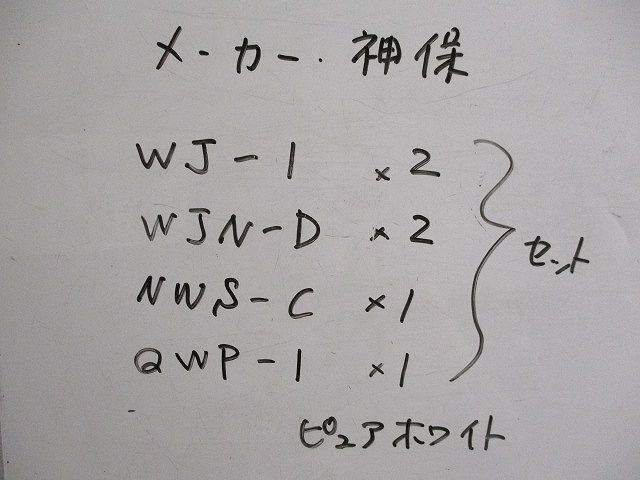 メーカー. 神保
WJ-1 ×2
WJN-D ×2
NWS-C ×1
QWP-1 ×1
セット
ピュアホワイト